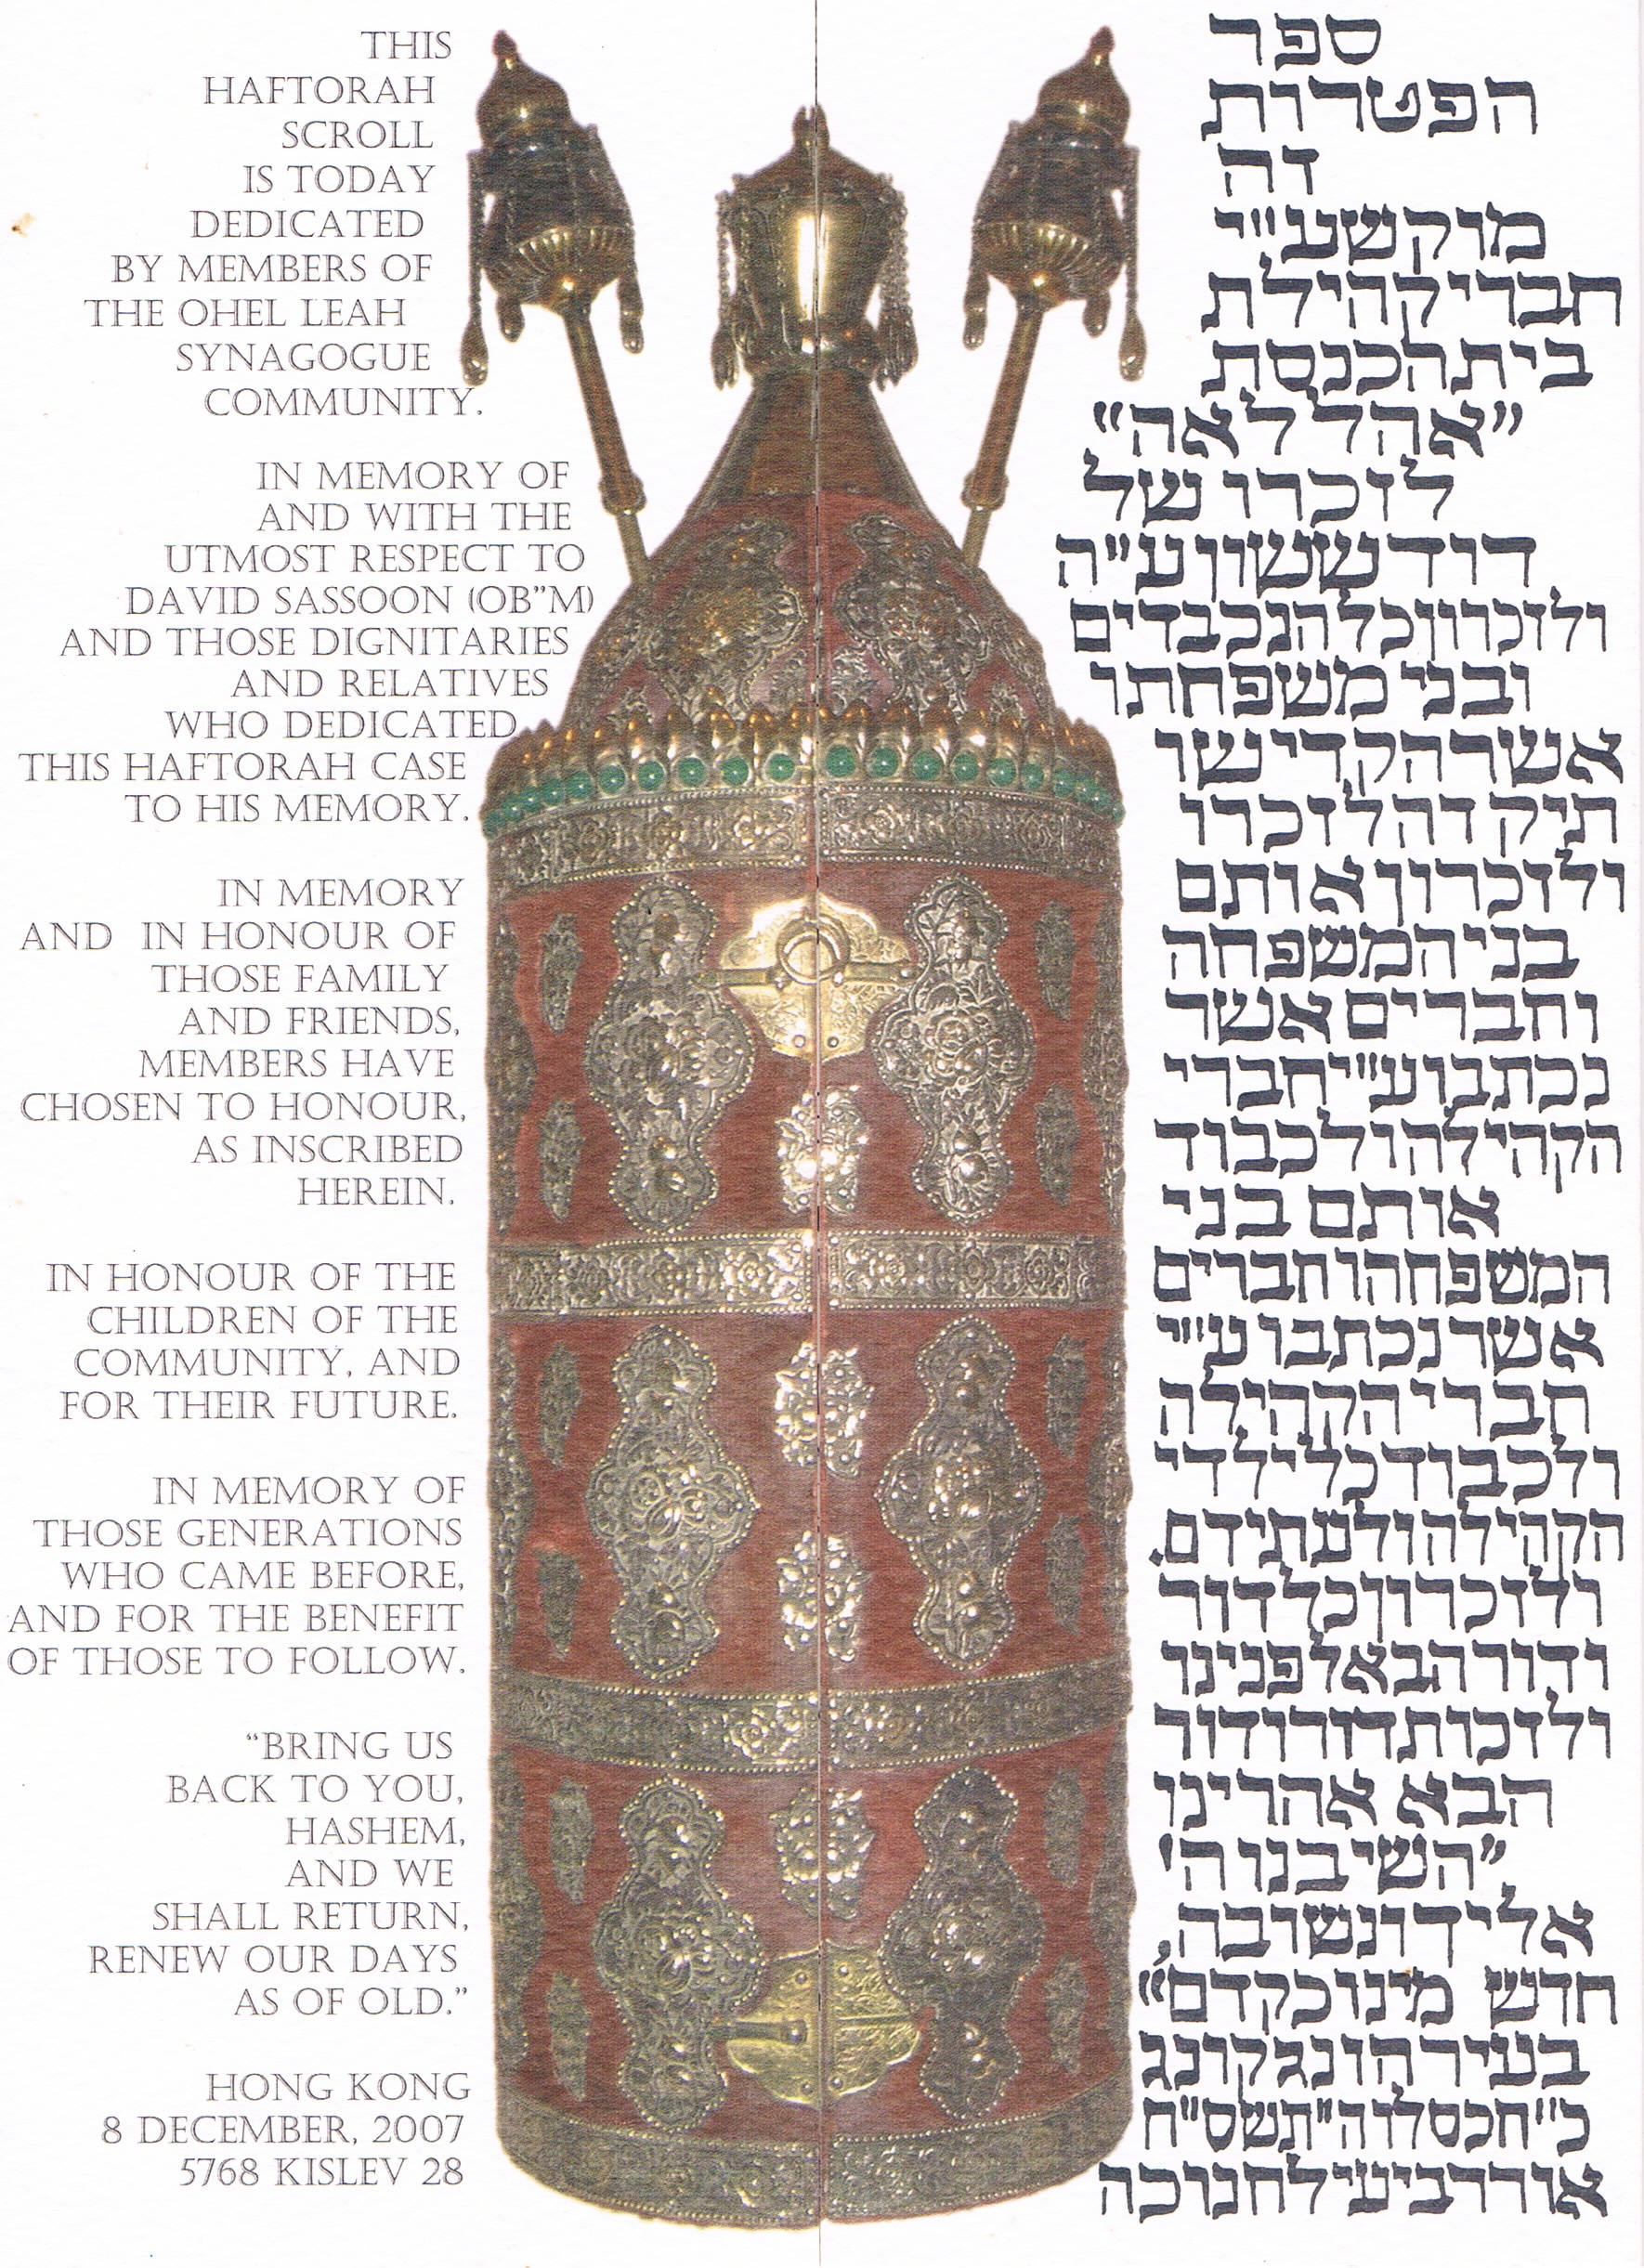 THIS
HAFTORAH
SCROLL
IS TODAY
DEDICATED
BY MEMBERS OF
THE OHEL LEAH
SYNAGOGUE
COMMUNITY.
IN MEMORY OF
AND WITH THE
UTMOST RESPECT TO
DAVID SASSOON (OB"M)
AND THOSE DIGNITARIES
AND RELATIVES
WHO DEDICATED
THIS HAFTORAH CASE
TO HIS MEMORY.
IN MEMORY
AND IN HONOUR OF
THOSE FAMILY
AND FRIENDS,
MEMBERS HAVE
CHOSEN TO HONOUR,
AS INSCRIBED
HEREIN.
IN HONOUR OF THE
CHILDREN OF THE
COMMUNITY, AND
FOR THEIR FUTURE.
IN MEMORY OF
THOSE GENERATIONS
WHO CAME BEFORE,
AND FOR THE BENEFIT
OF THOSE TO FOLLOW.
"BRING US
BACK TO YOU,
HASHEM,
AND WE
SHALL RETURN,
RENEW OUR DAYS
AS OF OLD."
HONG KONG
8 DECEMBER, 2007
5768 KISLEV 28
ספר
הפטרות
זה
מוקש ע"י
חברי קהילת
בית הכנסת
"אהל לאה"
לזכרו של
דוד ששון ע"ה
ולזכרון כל הנכבדים
ובני משפחתו
אשר הקדישו
תיק זה לזכרו
ולזכרון אותם
בני המשפחה
וחברים אשר
נכתבו ע"י חברי
הקהילה ולכבוד
אותם בני
המשפחה וחברים
אשר נכתבו ע"י
חברי הקהילה
ולכבוד כל ילדי
הקהילה ולעתידם.
ולזכרון כל דור
ודור הבא לפנינו
ולזכות דור ודור
הבא אחרינו
"השיבנו ה'
אליך ונשובה,
חדש ימינו כקדם"
בעיר הונג קונג
כ"ח כסלו ה"תשס"ח
אור רביעי לחנוכה